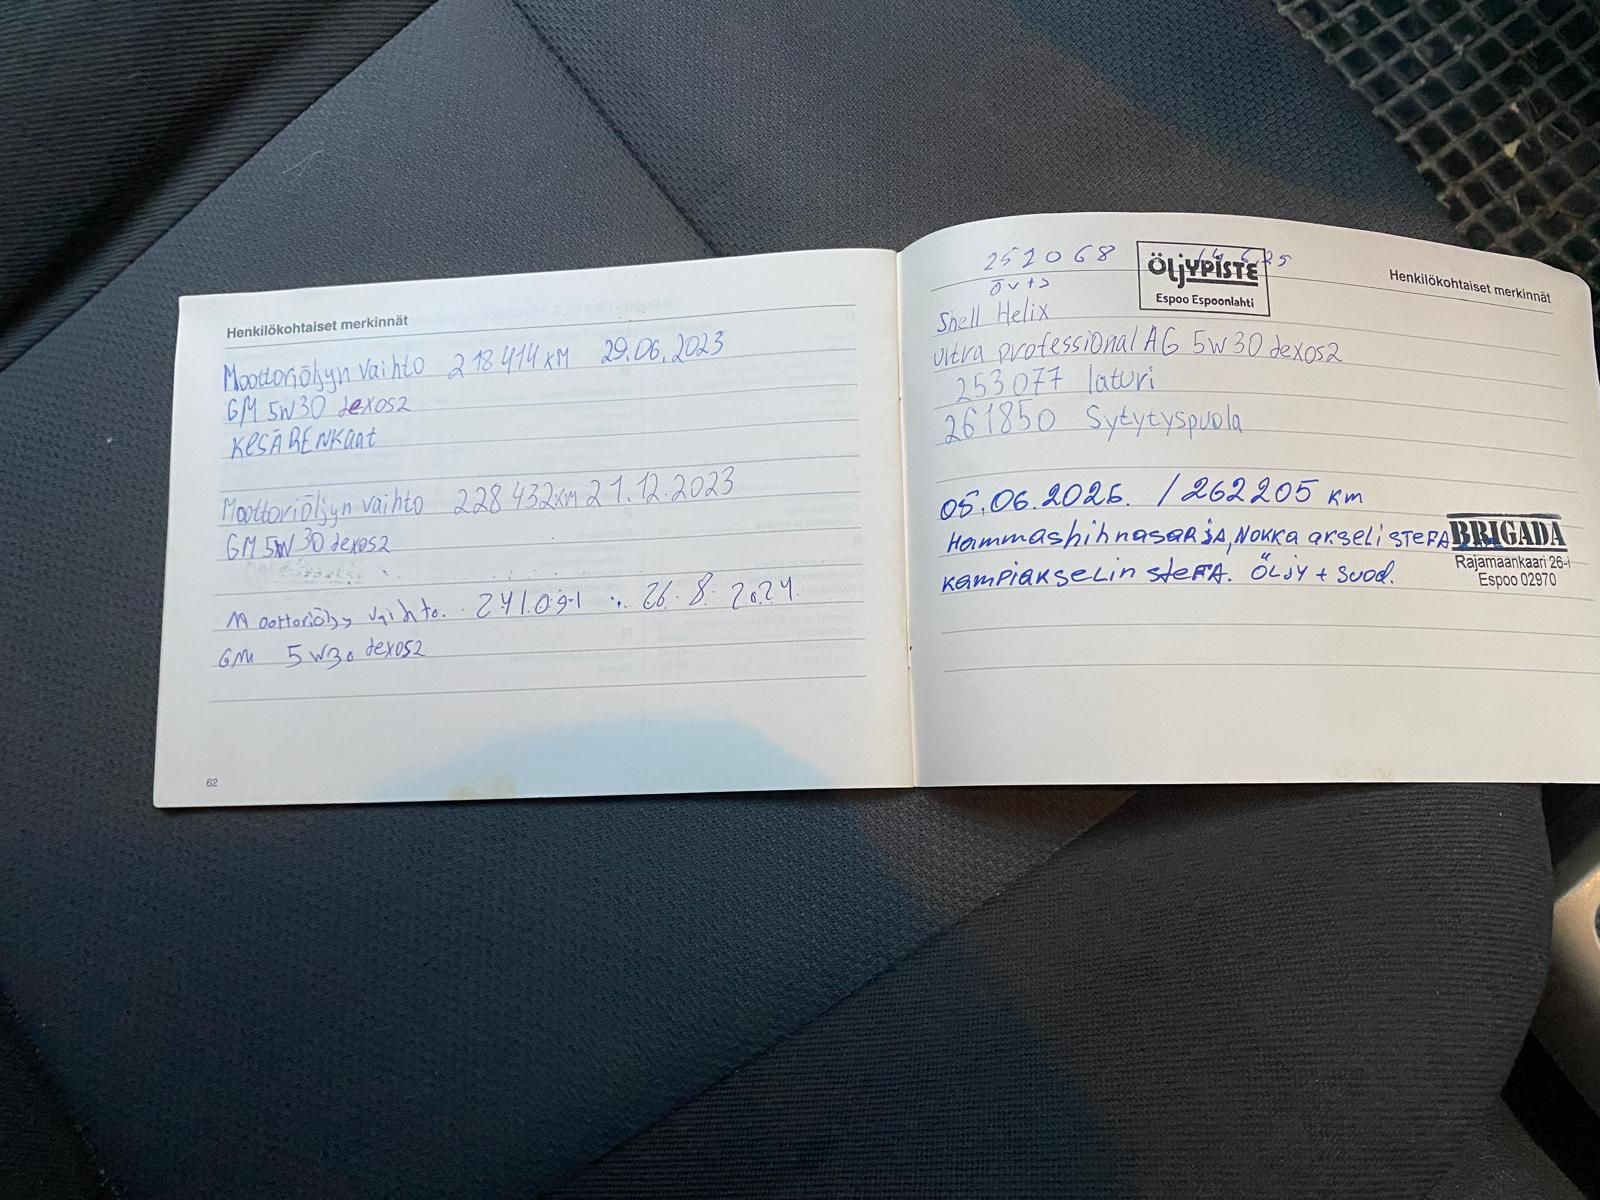 Henkilökohtaiset merkinnät
Moottoriöljyn vaihto 218414 KM 29.06.2023
GM 5W30 dexos2
KESÄRENKaat
Moottoriöljyn vaihto 228432KM 21.12.2023
GM 5W30 dexos2
Moottoriöljy vaihto. 241.091 26.8.2024.
GM 5W30 dexos2
62
Henkilökohtaiset merkinnät
252068
ÖljYPISTE
Espoo Espoonlahti
Shell Helix
ultra professional AG 5w30 dexos2
253077 laturi
261850 Sytytyspuola
05.06.2026. / 262205 km
Hammashihnasarja, Nokka akseli STEFA
BRIGADA
Rajamaankaari 26-i
Espoo 02970
Kampiakselin STEFA. ÖLJY + suod.